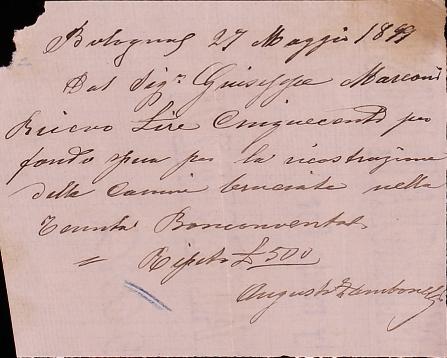 Bologna 27 Maggio 1899
Dal Sigr. Giuseppe Marconi
Ricevo Lire Cinquecento per
fondo spesa per la ricostruzione
della Camini bruciate nella
Tenuta Bonconvento
= Ripeto £ 500
Augusto Zambonelli